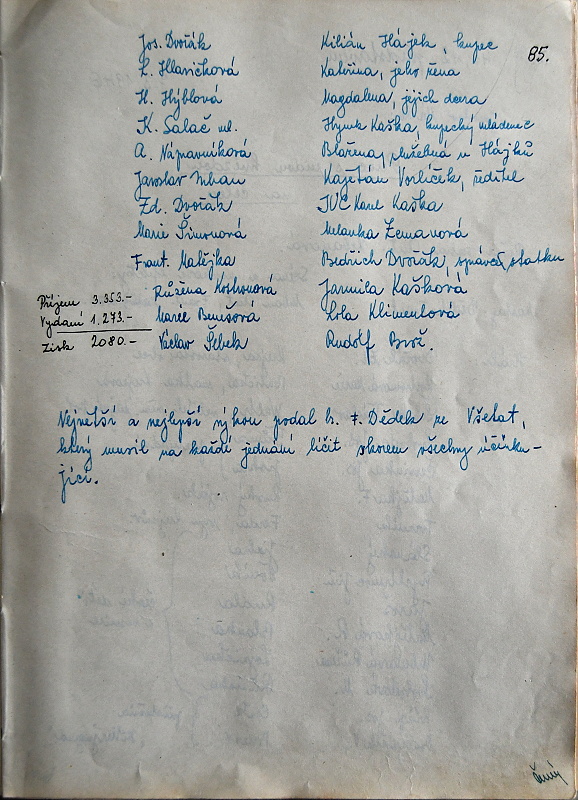 85.
Jos. Dvořák Kilián Hájek, kupec
Z. Hlavičková Kateřina, jeho žena
H. Hýblová Magdalena, jejich dcera
K. Salač ml. Hynek Kaška, kupecký mládenec
A. Nápravníková Blažena, služebná u Hájků
Jaroslav Urban Kajetán Vorlíček, ředitel
Zd. Dvořák JUC Karel Kaška
Marie Šimonová Melanka Zemanová
Frant. Matějka Bedřich Dvořák, správce statku
Růžena Jarmila Kašková
Marie Benešová Lola Klimentová
Václav Šebek Rudolf Brož.
Příjem 3.353.-
Vydání 1.273.-
Zisk 2080.-
Největší a nejlepší výkon podal b. F. Dědek ze Všetat,
který musil na každé jednání líčit skorem všechny účinku-
jící.